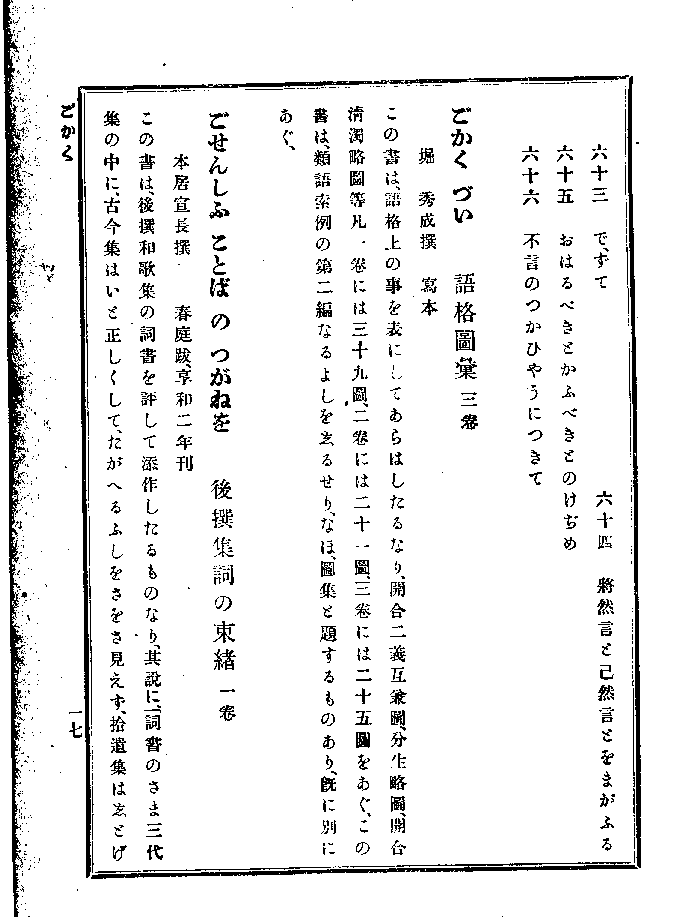 六十三　で、すて　六十四　將然言と已然言とをまがふる
六十五　おはるべきとかふべきとのけぢめ
六十六　不言のつかひやうにつきて
ごかく づい　語格圖彙 三卷
堀　秀成撰　寫本
この書は、語格上の事を表にしてあらはしたるなり、開合二義互兼圖、分生略圖、開合
淸濁略圖等凡一卷には三十九圖、二卷には二十一圖、三卷には二十五圖をあぐ、この
書は、類語索例の第二編なるよしをゑるせり、なほ、圖集と題するものあり、旣に別に
あぐ、
ごせんしふ ことば の つがねを　後撰集詞の束緒 一卷
本居宣長撰　春庭跋、享和二年刊
この書は、後撰和歌集の詞書を評して添作したるものなり、其説に、「詞書のさま三代
集の中に、古今集はいと正しくして、たがへるふしをさをさ見えず、拾遺集はゑとげ
ごかく
一七